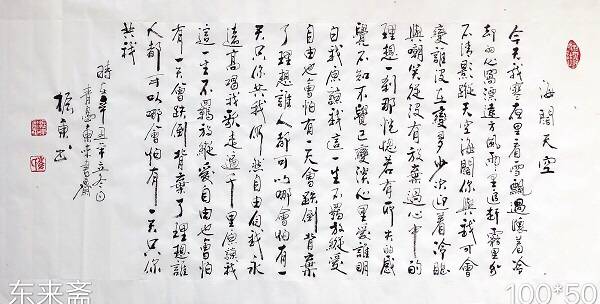 海闊天空
今天我寒夜里看雪飄過懷着冷
却的心窩漂遠方風雨里追赶霧里分
不清影蹤天空海闊你與我可會
變誰沒在變多少次迎着冷眼
與嘲笑從沒有放棄過心中的
理想一刹那恍惚若有所失的感
覺不知不覺已變淡心里愛誰明
白我原諒我這一生不羈放縱愛
自由也會怕有一天會跌倒背棄
了理想誰人都可以哪會怕有一
天只你共我仍然自由自我永
遠高唱我歌走遍千里原諒我
這一生不羈放縱愛自由也會怕
有一天會跌倒背棄了理想誰
人都可以哪會怕有一天只你
共我
時在辛丑年五
青島東來書齋
振
东来斋
100*50